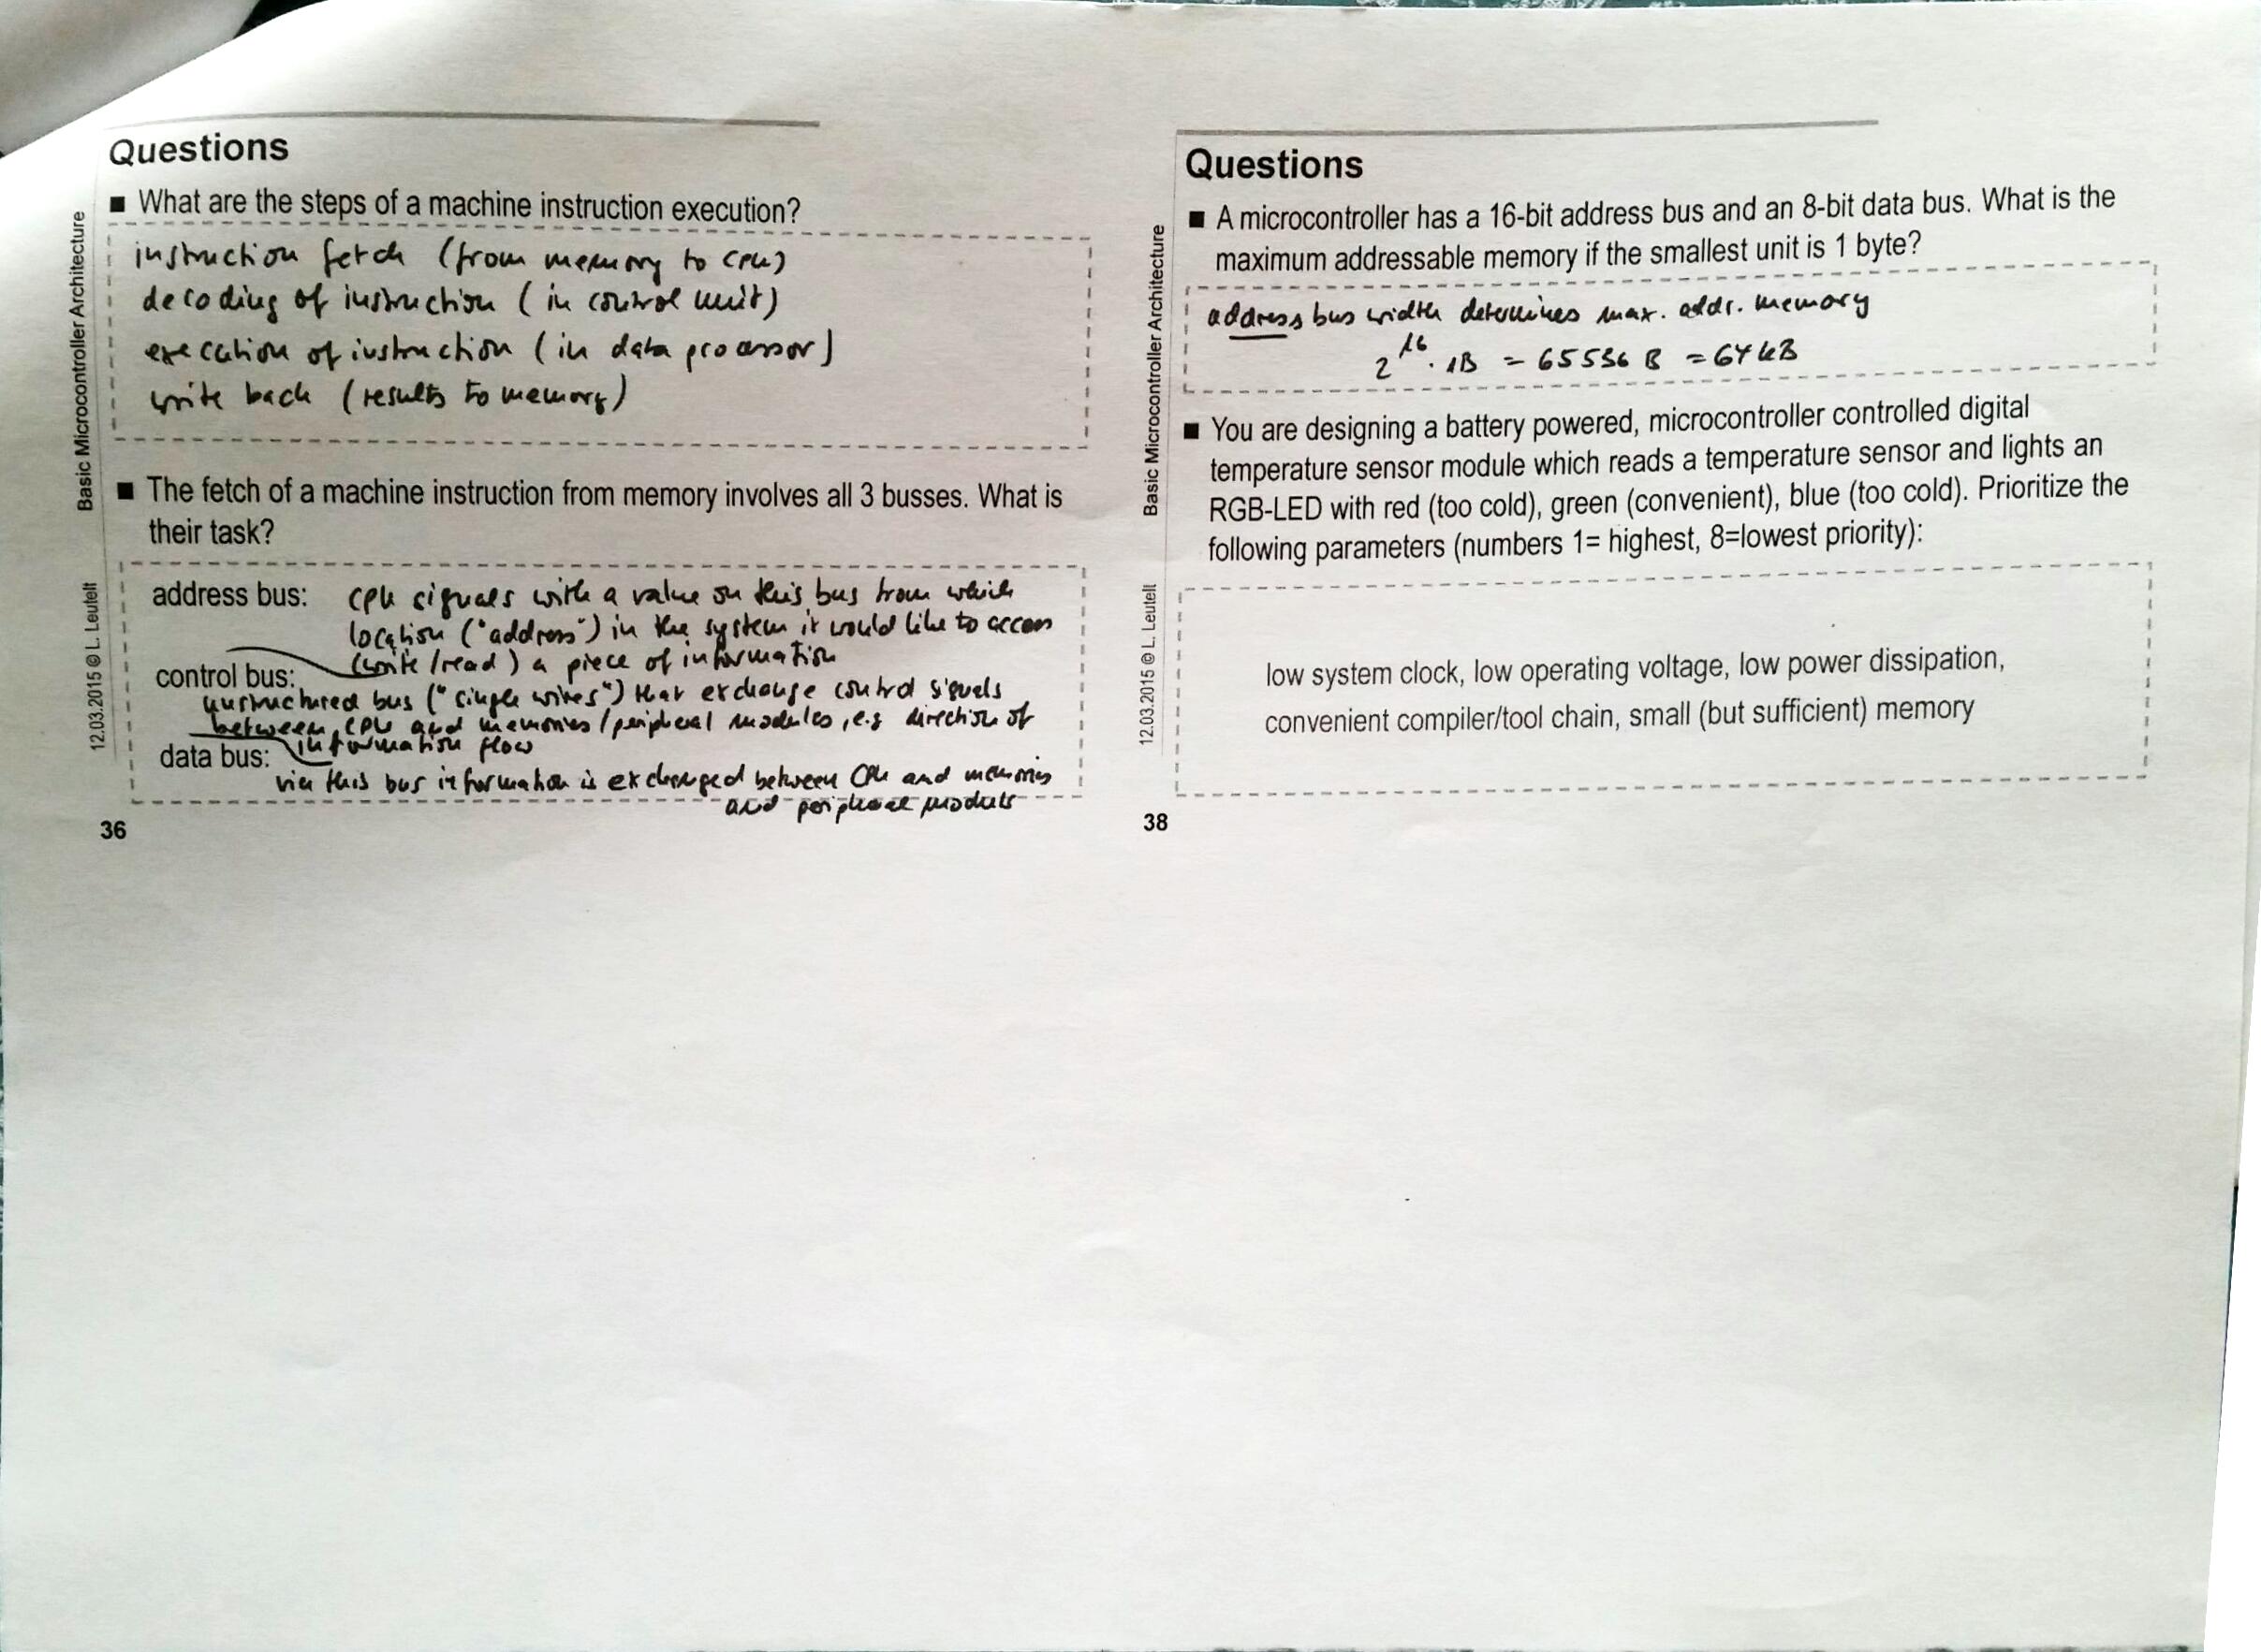 Questions
■ What are the steps of a machine instruction execution?
instruction fetch (from memory to CPU)
decoding of instruction (in control unit)
execution of instruction (in data processor)
write back (results to memory)
■ The fetch of a machine instruction from memory involves all 3 busses. What is
their task?
address bus: CPU signals with a value on this bus from which
location ("address") in the system it would like to access
(write/read) a piece of information
control bus:
unstructured bus ("single wires") that exchange control signals
between CPU and memories/peripheral modules, e.g. direction of
information flow
data bus:
via this bus information is exchanged between CPU and memories
and peripheral moduls
36
Basic Microcontroller Architecture
12.03.2015 © L. Leutelt
Questions
■ A microcontroller has a 16-bit address bus and an 8-bit data bus. What is the
maximum addressable memory if the smallest unit is 1 byte?
address bus width determines max. addr. memory
2^16 · 1B = 65536 B = 64 kB
■ You are designing a battery powered, microcontroller controlled digital
temperature sensor module which reads a temperature sensor and lights an
RGB-LED with red (too cold), green (convenient), blue (too cold). Prioritize the
following parameters (numbers 1= highest, 8=lowest priority):
low system clock, low operating voltage, low power dissipation,
convenient compiler/tool chain, small (but sufficient) memory
38
Basic Microcontroller Architecture
12.03.2015 © L. Leutelt